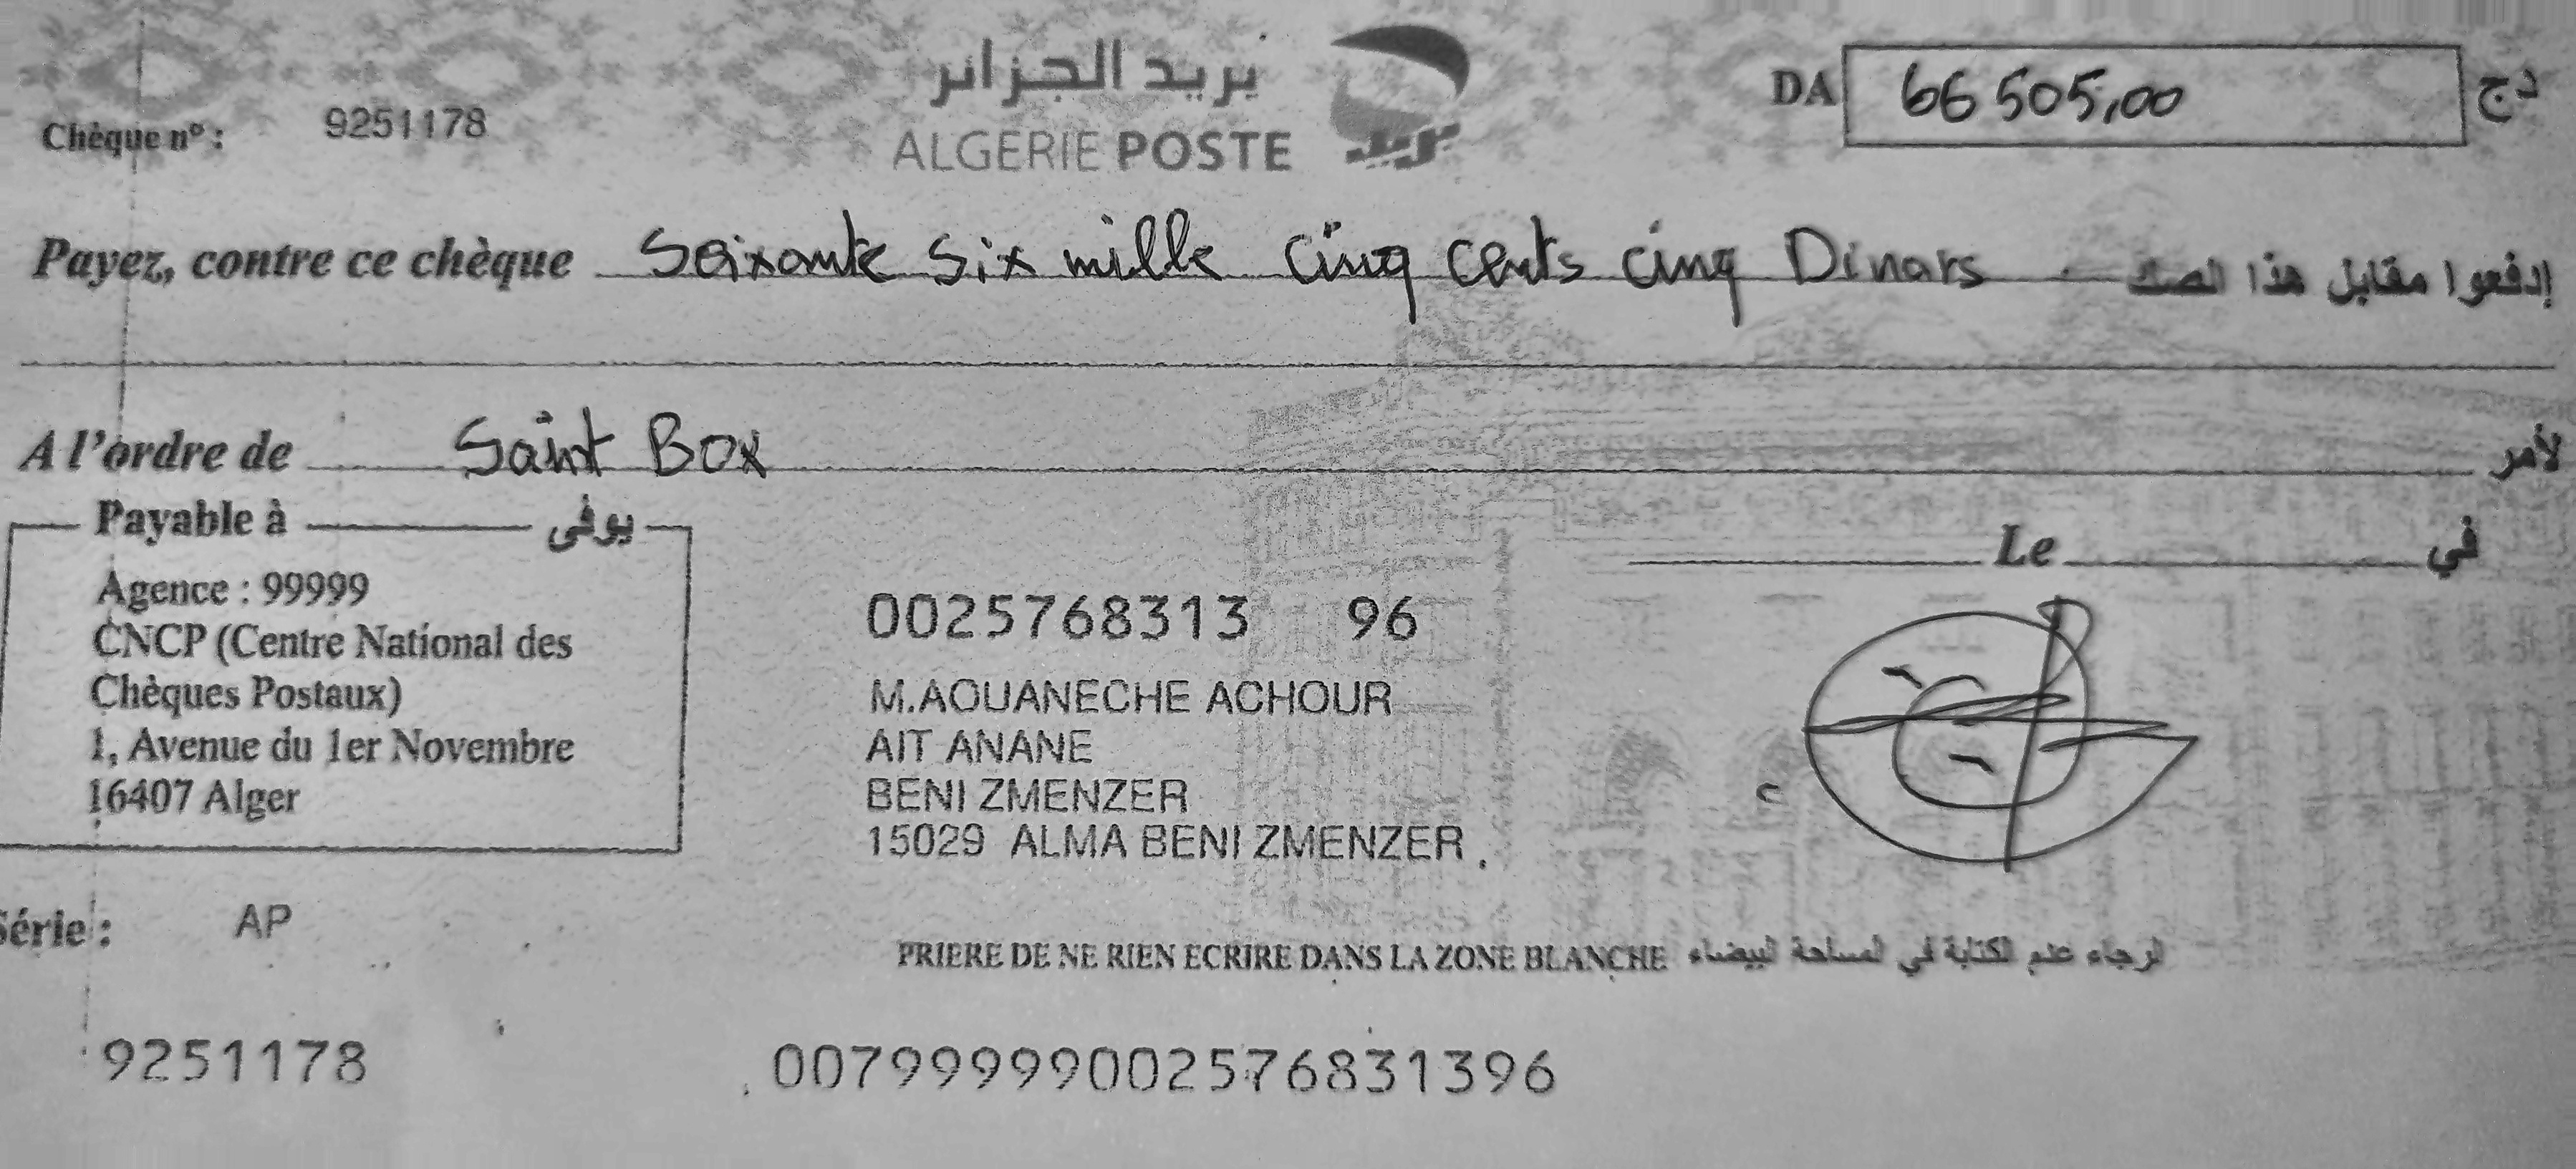 بريد الجزائر
ALGERIE POSTE
بريد
Chèque n° : 9251178
DA 66 505,00 دج
Payez, contre ce chèque Soixante Six mille Cinq cents cinq Dinars إدفعوا مقابل هذا الصك
A l'ordre de Saint Box لأمر
Payable à يوفى
Agence : 99999
CNCP (Centre National des
Chèques Postaux)
1, Avenue du 1er Novembre
16407 Alger
Le في
0025768313 96
M.AOUANECHE ACHOUR
AIT ANANE
BENI ZMENZER
15029 ALMA BENI ZMENZER
Série : AP
PRIERE DE NE RIEN ECRIRE DANS LA ZONE BLANCHE الرجاء عدم الكتابة في المساحة البيضاء
9251178 00799999002576831396